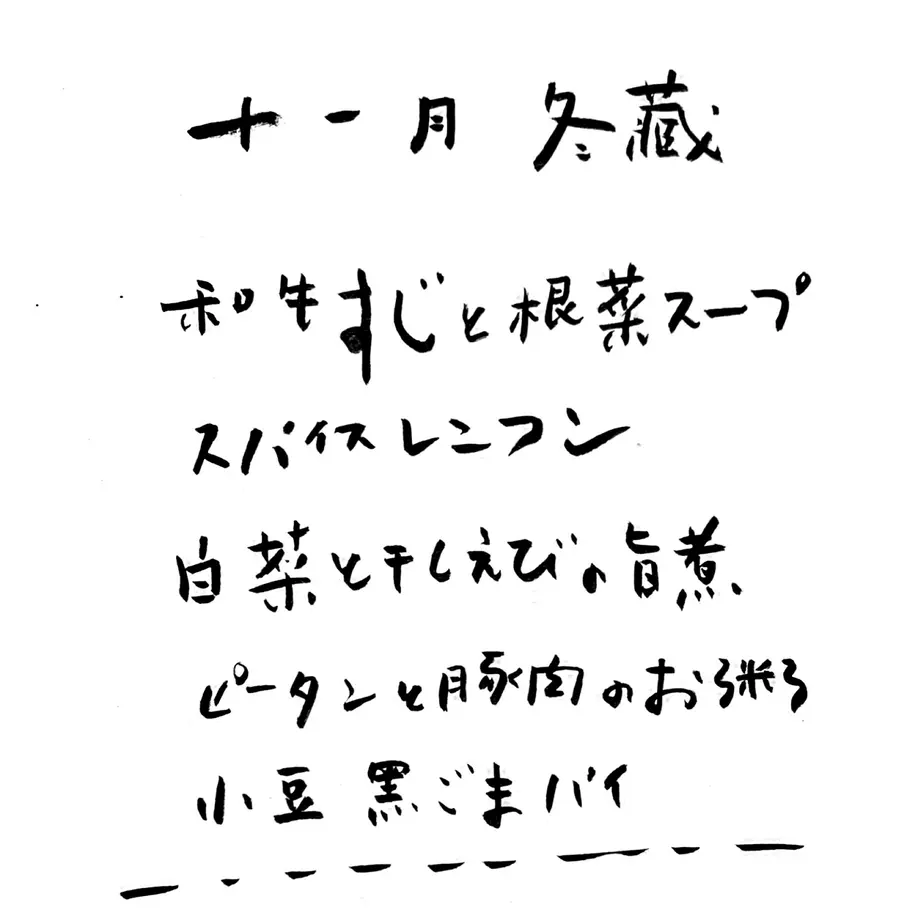 十一月 冬藏
和牛すじと根菜スープ
スパイスレンコン
白菜と干しえびの旨煮
ピータンと豚肉のお粥
小豆 黒ごまパイ